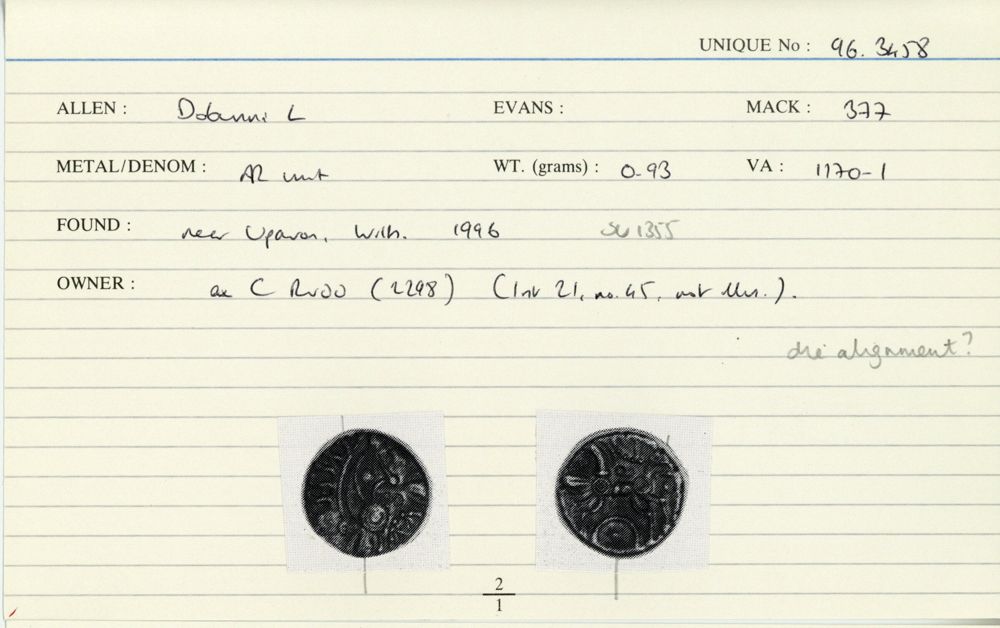 UNIQUE No : 96. 3458
ALLEN : Dobunni L EVANS : MACK : 377
METAL/DENOM : AR unit WT. (grams) : 0.93 VA : 1170-1
FOUND : near Upavon, Wilts. 1996 SU 1355
OWNER : ex C Rudd (2298) (list 21, no. 45, not illus.).
die alignment?
2
1